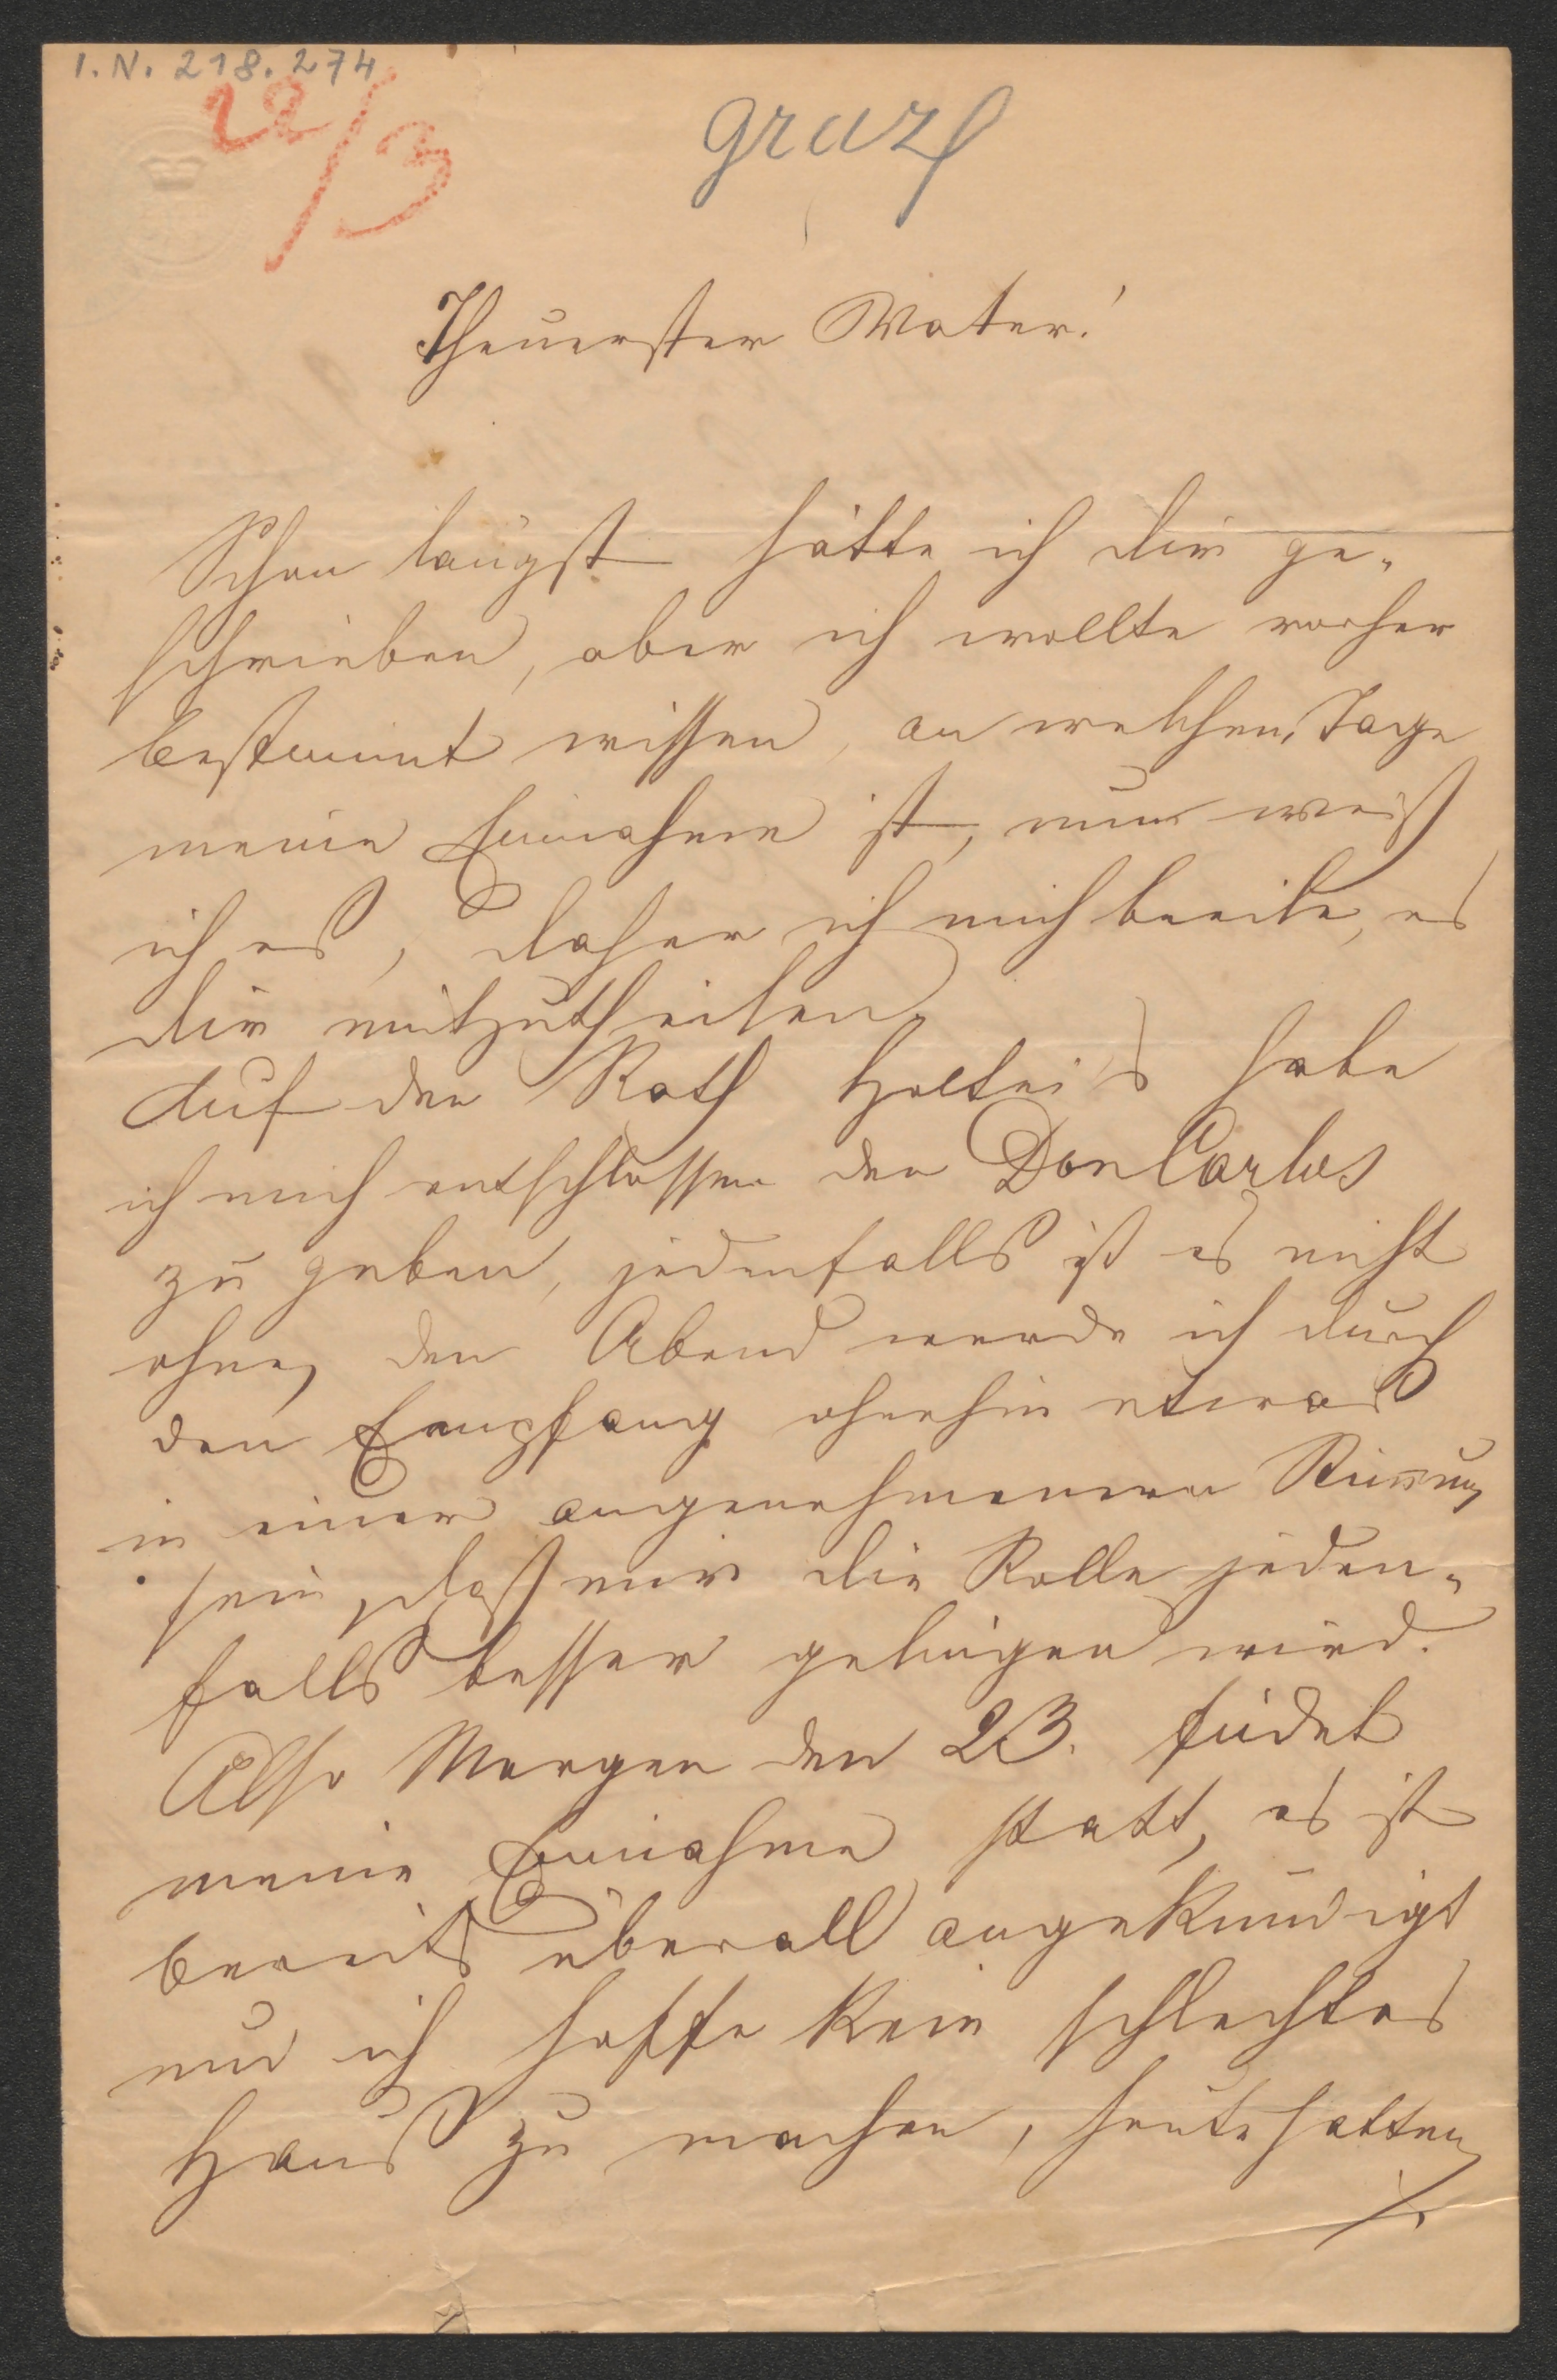 I. N. 218.274
22/3
Graz
Theuerster Vater!
Schon längst hätte ich dir ge-
schrieben, aber ich wollte vorher
bestimmt wissen, an welchem Tage
meine Einnahme ist, nun weiß
ich es, daher ich mich beeile, es
dir mitzutheilen.
Auf den Rath Holtei's habe
ich mich entschlossen den Don Carlos
zu geben, jedenfalls ist es nicht
ohne, den Abend werde ich durch
den Empfang ohnehin etwas
in einer angenehmeren Stimung
sein, daß mir die Rolle jeden-
falls besser gelingen wird.
Also Morgen den 23. findet
meine Einnahme statt, es ist
bereits überall angekündigt
und ich hoffe kein schlechtes
Haus zu machen, heute hatten